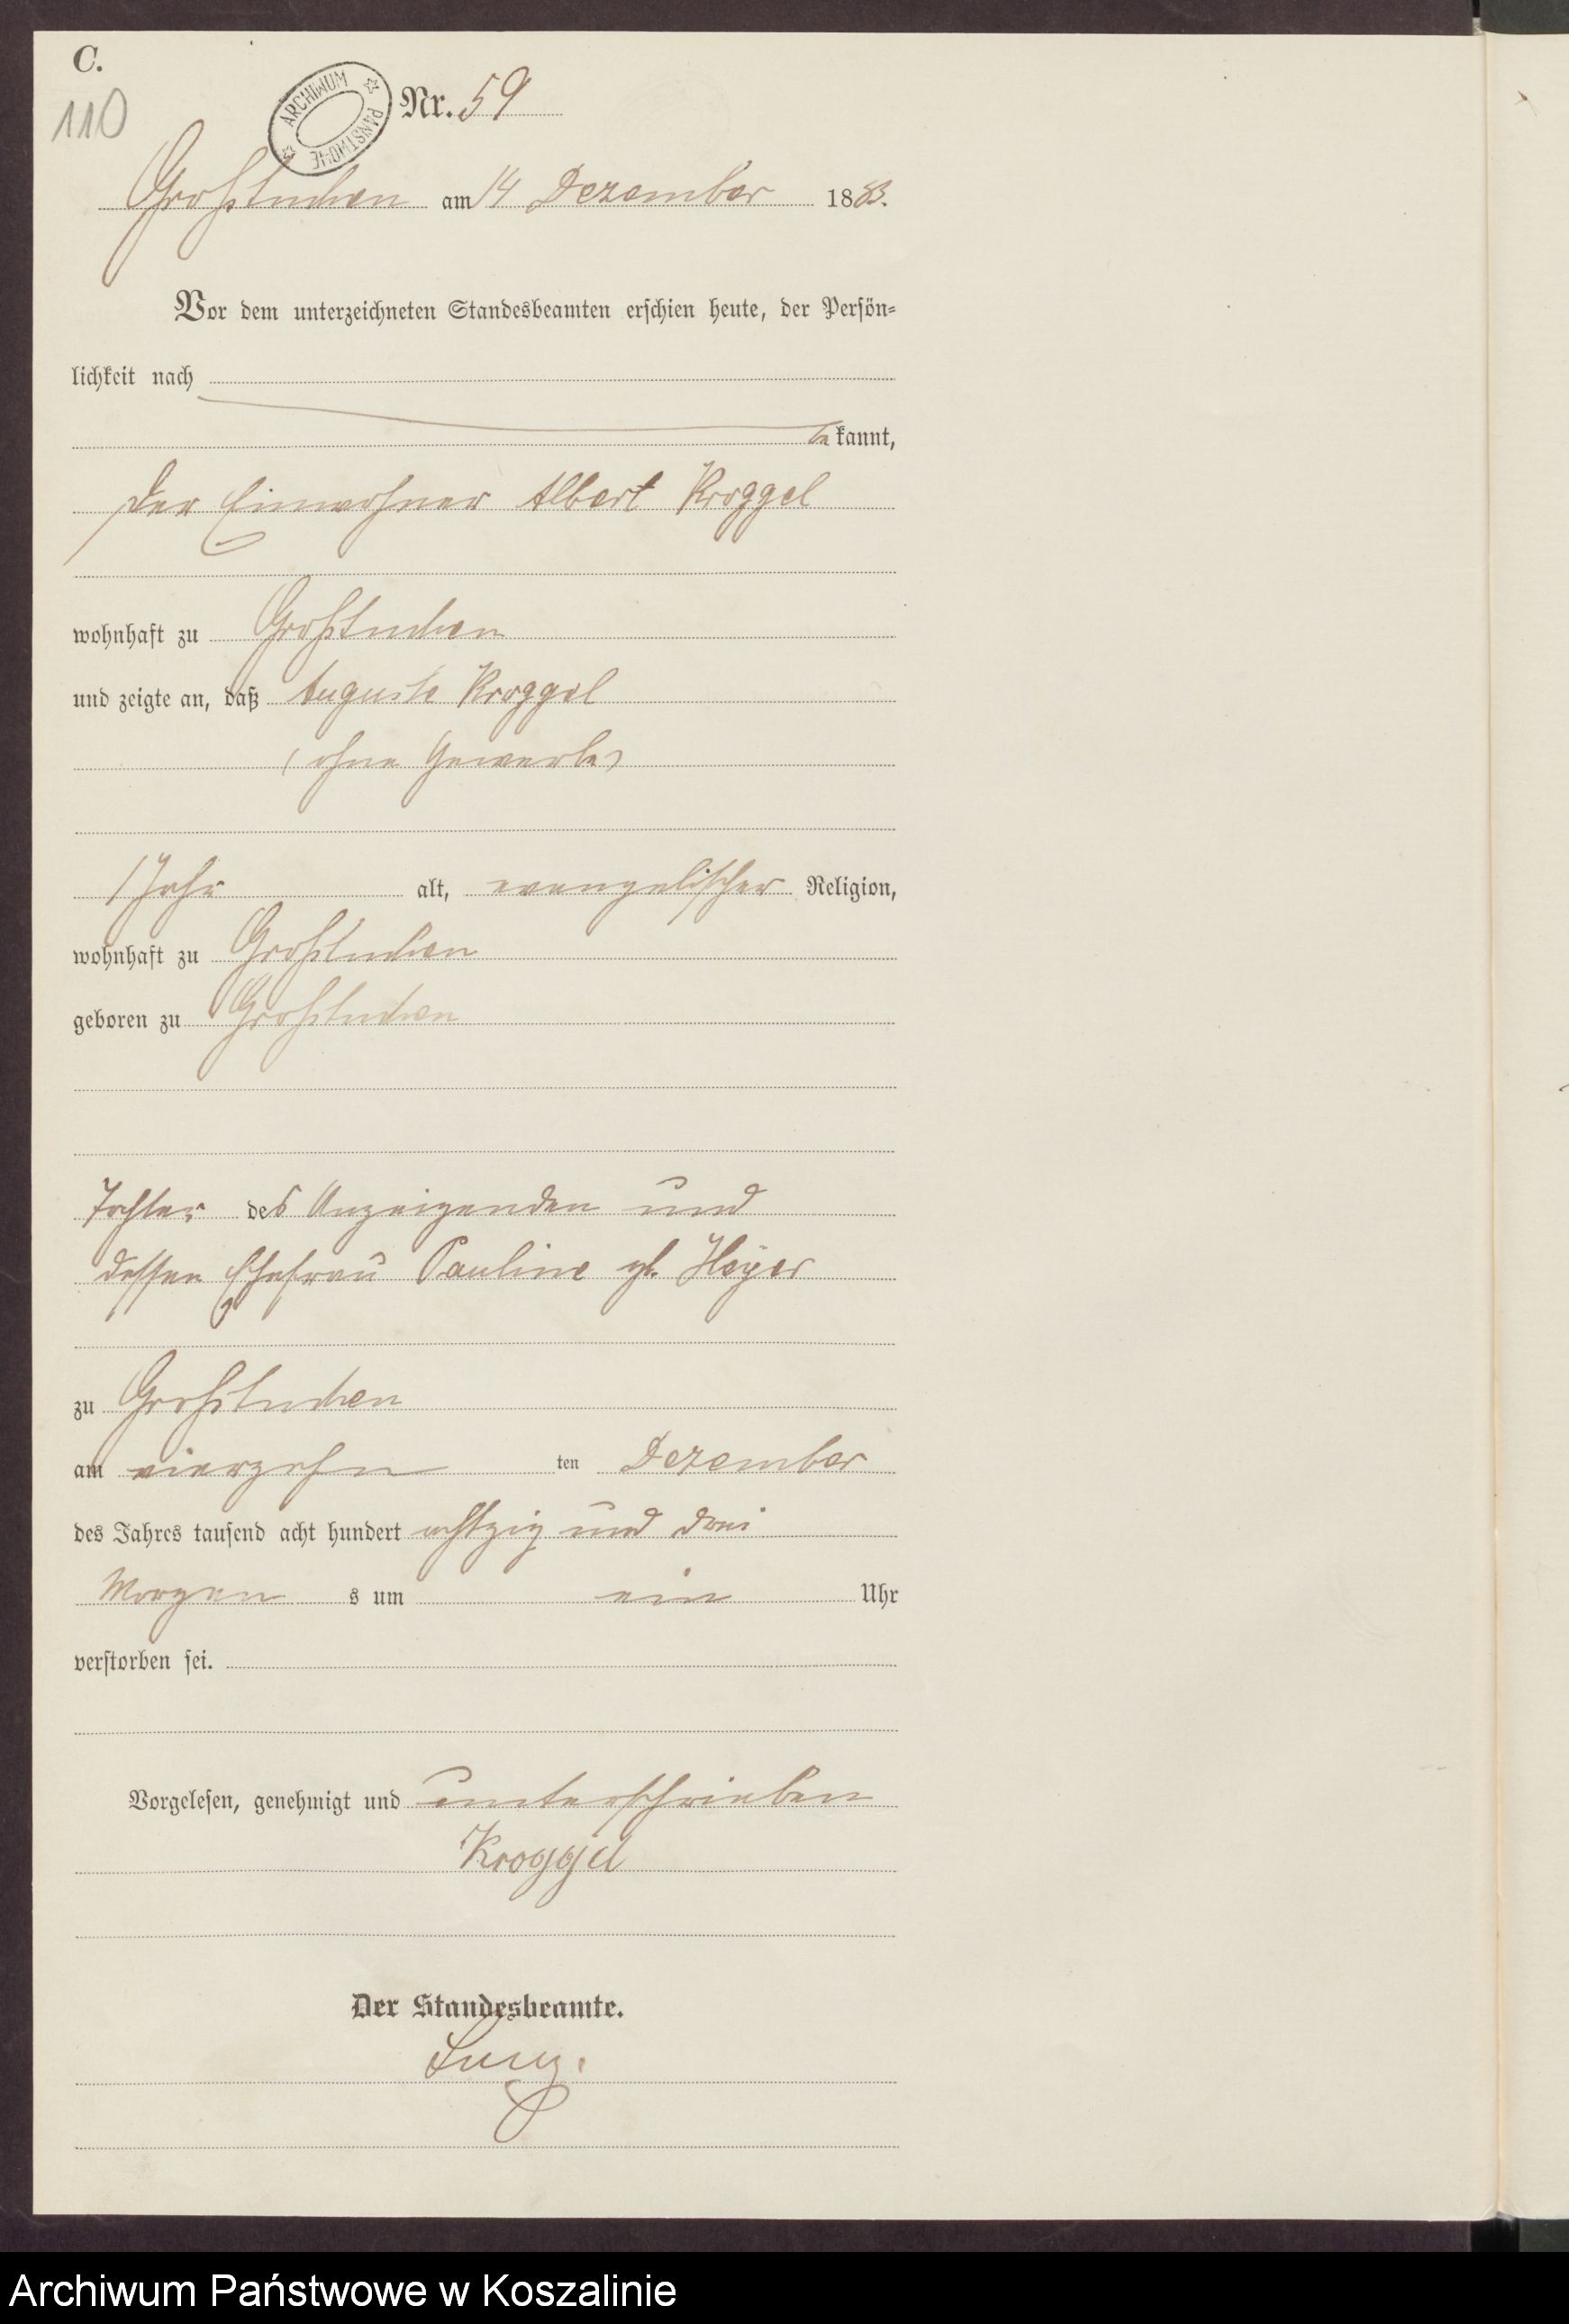 C.
110
ARCHIWUM PAŃSTWOWE
Nr. 59
Großtuchen am 14 Dezember 1883.
Vor dem unterzeichneten Standesbeamten erschien heute, der Persön=
lichkeit nach
bekannt,
der Einwohner Albert Kroggel
wohnhaft zu Großtuchen
und zeigte an, daß Auguste Kroggel
(ohne Gewerbe)
1 Jahr alt, evangelischer Religion,
wohnhaft zu Großtuchen
geboren zu Großtuchen
Tochter des Anzeigenden und
dessen Ehefrau Pauline gb. Heyer
zu Großtuchen
am vierzehn ten Dezember
des Jahres tausend acht hundert achtzig und drei
Morgen s um ein Uhr
verstorben sei.
Vorgelesen, genehmigt und unterschrieben
Kroggel
Der Standesbeamte.
Archiwum Państwowe w Koszalinie